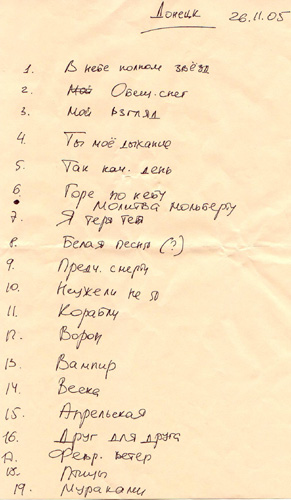 Донецк 26.11.05
1. В небе полном звёзд
2. Мой Обещ. снег
3. Мой взгляд
4. Ты моё дыхание
5. Так кон. день
6. Горе по небу
• Молитва Мольберту
7. Я теря тебя
8. Белая песня (?)
9. Предч. смерти
10. Неужели не я
11. Корабли
12. Ворон
13. Вампир
14. Весна
15. Апрельская
16. Друг для друга
17. Февр. ветер
18. Птицы
19. Мураками